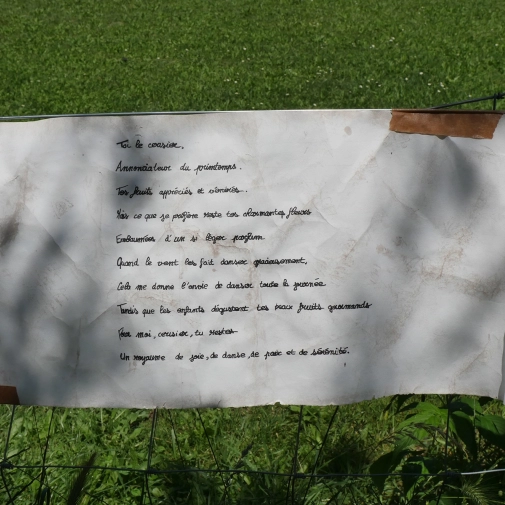 Toi le cerisier,
Annonciateur du printemps.
Tes fruits appréciés et vénérés.
Mais ce que je préfère reste tes charmantes fleurs
Embaumées d'un si léger parfum
Quand le vent les fait danser gracieusement,
Cela me donne l'envie de danser toute la journée
Tandis que les enfants dégustent tes beaux fruits gourmands
Pour moi, cerisier, tu restes
Un royaume de joie, de danse, de paix et de sérénité.